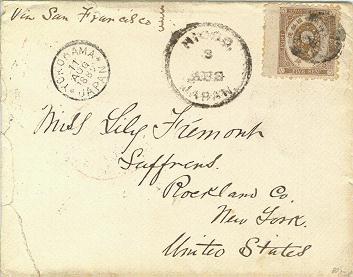 Via San Francisco
YOKOHAMA
JAPAN
11
AUG
HIOGO.
8
AUG
JAPAN.
Miss Lily Fremont
Suffrens.
Rockland Co.
New York.
United States